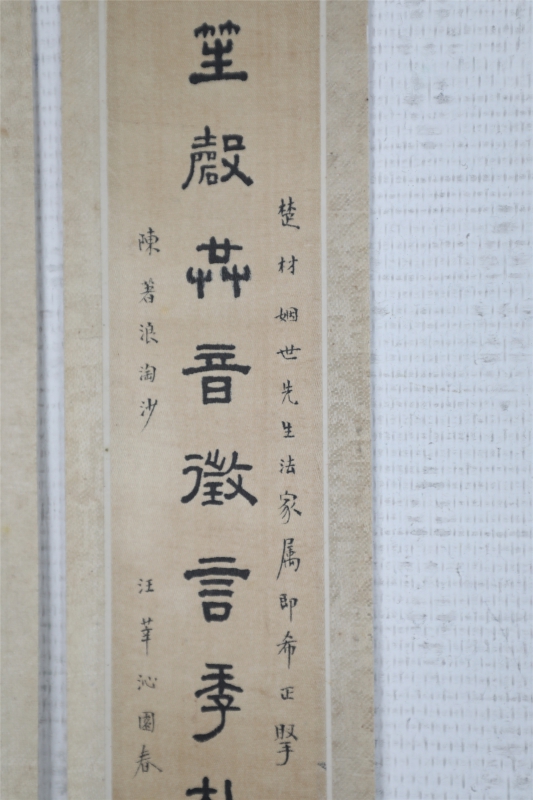 楚材姻世先生法家属即希正掔
笙磬共音徵言季
陳著浪淘沙
汪莘沁園春